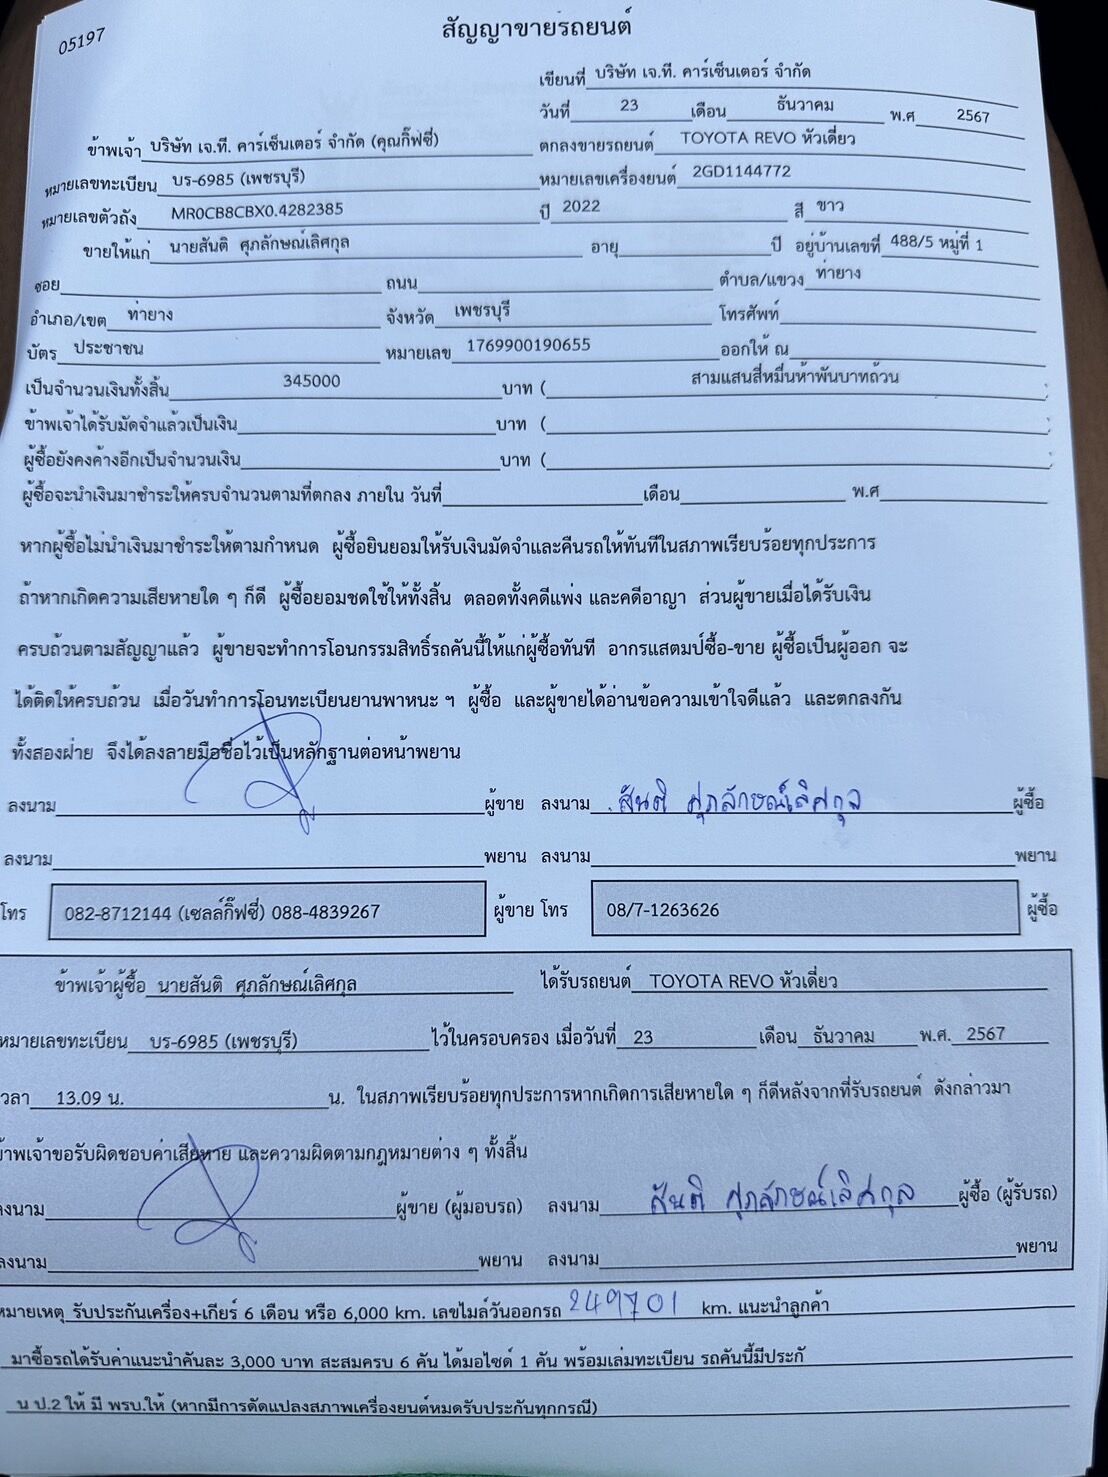 05197
สัญญาขายรถยนต์
เขียนที่ บริษัท เจ.ที. คาร์เซ็นเตอร์ จำกัด
วันที่ 23 เดือน ธันวาคม พ.ศ 2567
ข้าพเจ้า บริษัท เจ.ที. คาร์เซ็นเตอร์ จำกัด (คุณกิ๊ฟซี่) ตกลงขายรถยนต์ TOYOTA REVO หัวเดี่ยว
หมายเลขทะเบียน บร-6985 (เพชรบุรี) หมายเลขเครื่องยนต์ 2GD1144772
หมายเลขตัวถัง MR0CB8CBX0.4282385 ปี 2022 สี ขาว
ขายให้แก่ นายสันติ ศุภลักษณ์เลิศกุล อายุ ปี อยู่บ้านเลขที่ 488/5 หมู่ที่ 1
ซอย ถนน ตำบล/แขวง ท่ายาง
อำเภอ/เขต ท่ายาง จังหวัด เพชรบุรี โทรศัพท์
บัตร ประชาชน หมายเลข 1769900190655 ออกให้ ณ
เป็นจำนวนเงินทั้งสิ้น 345000 บาท ( สามแสนสี่หมื่นห้าพันบาทถ้วน )
ข้าพเจ้าได้รับมัดจำแล้วเป็นเงิน บาท ( )
ผู้ซื้อยังคงค้างอีกเป็นจำนวนเงิน บาท ( )
ผู้ซื้อจะนำเงินมาชำระให้ครบจำนวนตามที่ตกลง ภายใน วันที่ เดือน พ.ศ
หากผู้ซื้อไม่นำเงินมาชำระให้ตามกำหนด ผู้ซื้อยินยอมให้รับเงินมัดจำและคืนรถให้ทันทีในสภาพเรียบร้อยทุกประการ
ถ้าหากเกิดความเสียหายใด ๆ ก็ดี ผู้ซื้อยอมชดใช้ให้ทั้งสิ้น ตลอดทั้งคดีแพ่ง และคดีอาญา ส่วนผู้ขายเมื่อได้รับเงิน
ครบถ้วนตามสัญญาแล้ว ผู้ขายจะทำการโอนกรรมสิทธิ์รถคันนี้ให้แก่ผู้ซื้อทันที อากรแสตมป์ซื้อ-ขาย ผู้ซื้อเป็นผู้ออก จะ
ได้ติดให้ครบถ้วน เมื่อวันทำการโอนทะเบียนยานพาหนะ ฯ ผู้ซื้อ และผู้ขายได้อ่านข้อความเข้าใจดีแล้ว และตกลงกัน
ทั้งสองฝ่าย จึงได้ลงลายมือชื่อไว้เป็นหลักฐานต่อหน้าพยาน
ลงนาม ผู้ขาย ลงนาม สันติ ศุภลักษณ์เลิศกุล ผู้ซื้อ
ลงนาม พยาน ลงนาม พยาน
โทร 082-8712144 (เซลล์กิ๊ฟซี่) 088-4839267 ผู้ขาย โทร 08/7-1263626 ผู้ซื้อ
ข้าพเจ้าผู้ซื้อ นายสันติ ศุภลักษณ์เลิศกุล ได้รับรถยนต์ TOYOTA REVO หัวเดี่ยว
หมายเลขทะเบียน บร-6985 (เพชรบุรี) ไว้ในครอบครอง เมื่อวันที่ 23 เดือน ธันวาคม พ.ศ. 2567
เวลา 13.09 น. น. ในสภาพเรียบร้อยทุกประการหากเกิดการเสียหายใด ๆ ก็ดีหลังจากที่รับรถยนต์ ดังกล่าวมา
ข้าพเจ้าขอรับผิดชอบค่าเสียหาย และความผิดตามกฎหมายต่าง ๆ ทั้งสิ้น
ลงนาม ผู้ขาย (ผู้มอบรถ) ลงนาม สันติ ศุภลักษณ์เลิศกุล ผู้ซื้อ (ผู้รับรถ)
ลงนาม พยาน ลงนาม พยาน
หมายเหตุ รับประกันเครื่อง+เกียร์ 6 เดือน หรือ 6,000 km. เลขไมล์วันออกรถ 249701 km. แนะนำลูกค้า
มาซื้อรถได้รับค่าแนะนำคันละ 3,000 บาท สะสมครบ 6 คัน ได้มอไซด์ 1 คัน พร้อมเล่มทะเบียน รถคันนี้มีประกั
น ป.2 ให้ มี พรบ.ให้ (หากมีการดัดแปลงสภาพเครื่องยนต์หมดรับประกันทุกกรณี)